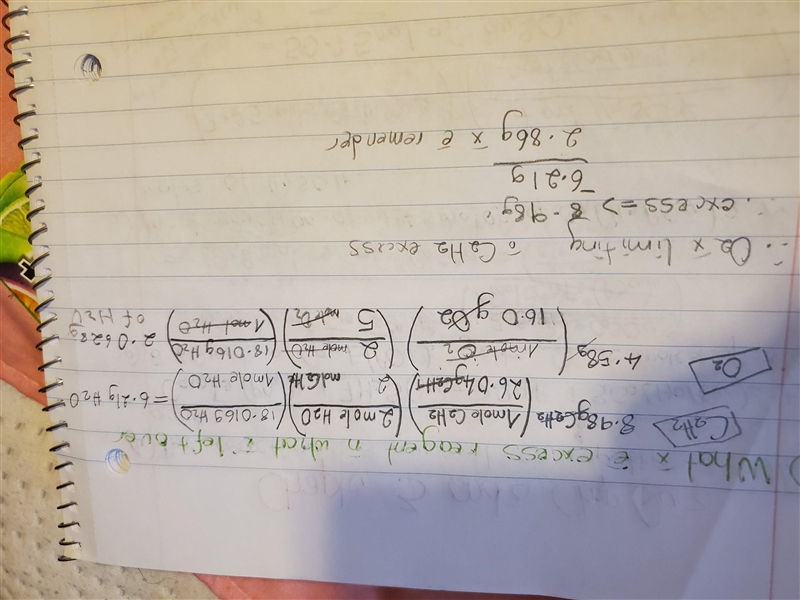 What x̄ ē excess reagent n̄ what x̄ left over
C2H2 8.98g C2H2 (1mole C2H2 / 26.04g C2H2) (2 mole H2O / 2 mol C2H2) (18.016g H2O / 1mole H2O) = 6.21g H2O
O2 4.58g (1mole O2 / 16.0 g O2) (2 mole H2O / 5 mol O2) (18.016g H2O / 1 mol H2O) 2.0628g
of H2O
∴ O2 x̄ limiting ∴ C2H2 excess
∴ excess => 8.98g
-6.21g
2.86g x̄ ē remender